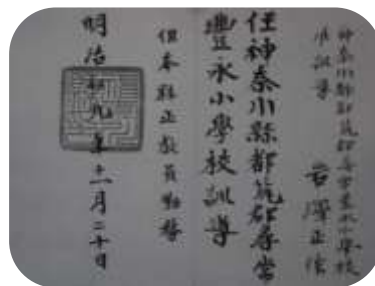 神奈川縣都筑郡尋常豊永小學校
准訓導 岩澤正信
任神奈川縣都筑郡尋常
豐永小學校訓導
但本縣正教員勤務
明治 九年十一月二十日